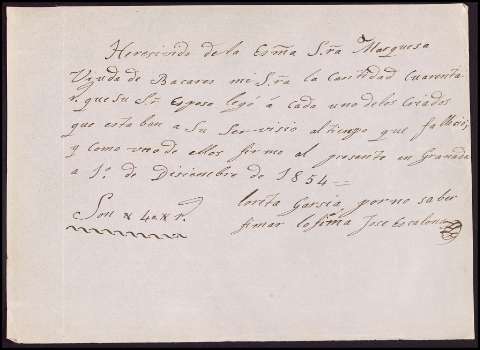 Heresivido de la Exma Sra Marquesa
Viuda de Bacares mi Sra la Cantidad Cuarenta
r. que su Sr Esposo legó á cada uno delos Criados
que estaban a Su Servisio al tiempo que fallició,
y como uno de ellos firmo el presente en Granada
a 1º de Disiembre de 1854
Son 40 r.
loreta Garsia, por no saber
fimar lo fima Jose Escalona